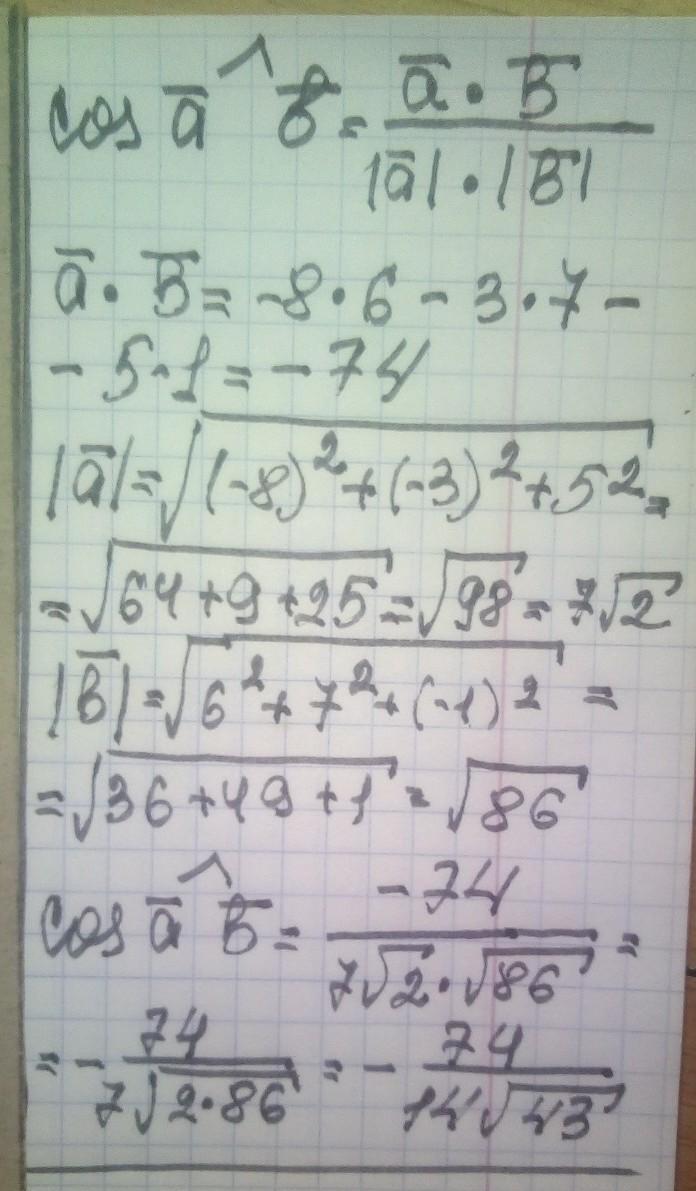 cos a̅ ^ b̅ = a̅ · b̅ / |a̅| · |b̅|
a̅ · b̅ = -8 · 6 - 3 · 7 -
- 5 · 1 = - 74
|a̅| = √((-8)² + (-3)² + 5²) =
= √(64 + 9 + 25) = √98 = 7√2
|b̅| = √(6² + 7² + (-1)²) =
= √(36 + 49 + 1) = √86
cos a̅ ^ b̅ = -74 / 7√2 · √86 =
= - 74 / 7√(2·86) = - 74 / 14√43